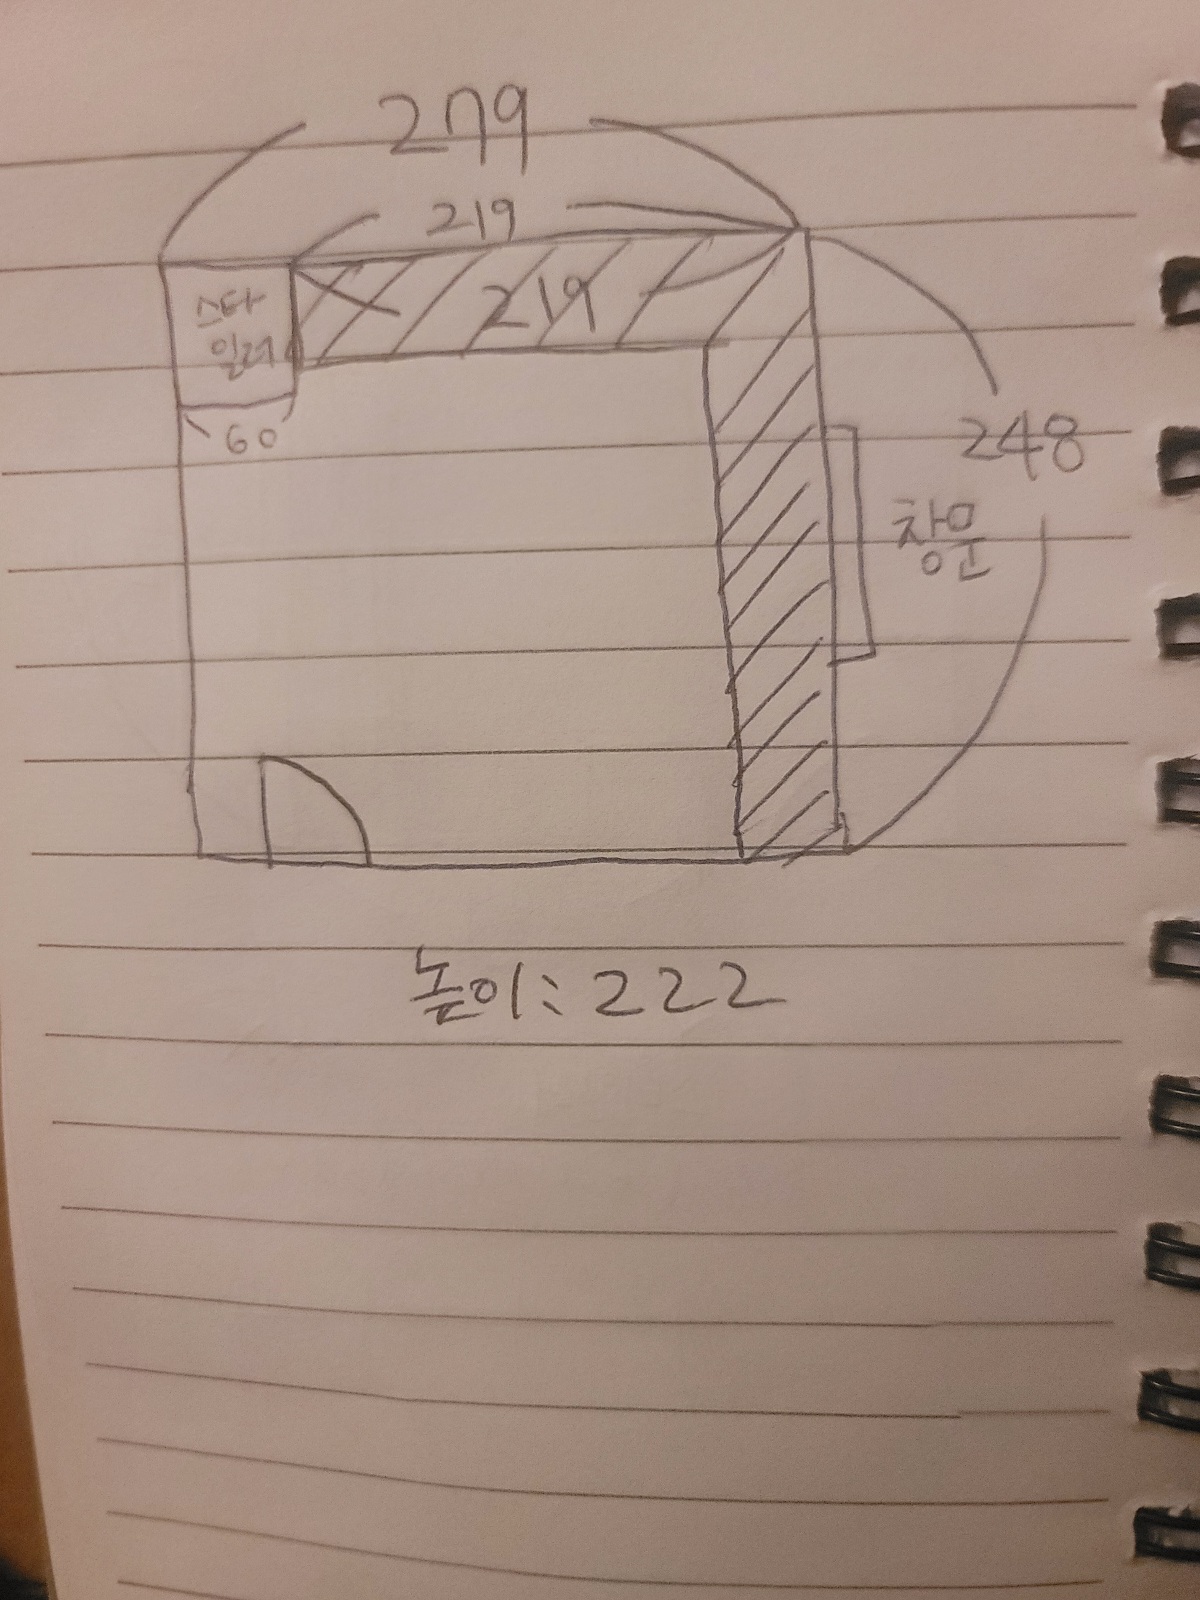 279
219
219
스타
일러
60
248
창문
높이: 222